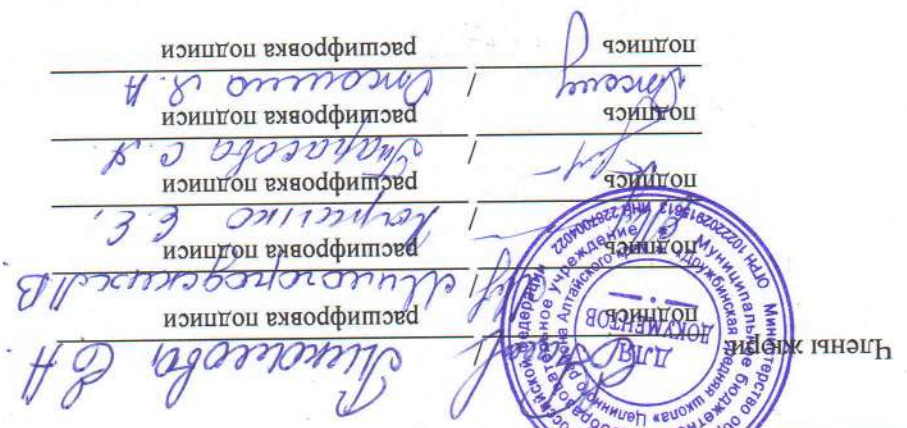 Члены жюри
/ Тимошова Е А
подпись расшифровка подписи
/ Миногородских Л В
подпись расшифровка подписи
/ Е. Е.
подпись расшифровка подписи
/ Тарасова С. А
подпись расшифровка подписи
/ Я. А
подпись расшифровка подписи
Министерство
Российской Федерации
Муниципальное бюджетное
учреждение
"Дружбинская средняя школа" Целинного района Алтайского края
ОГРН 1022202915613 ИНН 2287004022
ДЛЯ
ДОКУМЕНТОВ